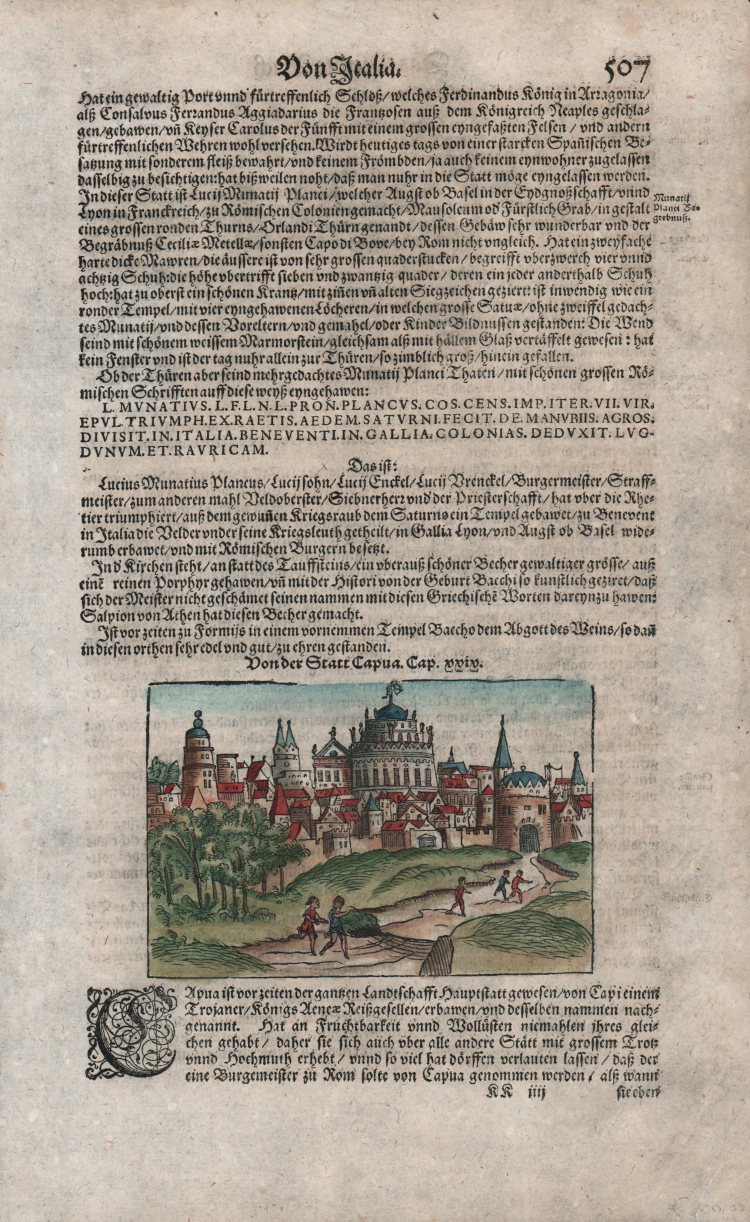 Von Italia. 507
Hat ein gewaltig Port vnnd fürtreffenlich Schloß/welches Ferdinandus König in Arragonia/
alß Consalvus Ferzandus Aggiadarius die Frantzosen auß dem Königreich Neaples geschla-
gen/gebawen/vn̄ Keyser Carolus der Fünfft mit einem grossen eyngefaßten Felsen / vnd andern
fürtreffenlichen Wehren wohl versehen. Wirdt heutiges tags von einer starcken Spañischen Be-
satzung mit sonderem fleiß bewahrt/vnd keinem Frömbden/ja auch keinem eynwohner zugelassen
dasselbig zu besichtigen: hat bißweilen noht/daß man nuhr in die Statt möge eyngelassen werden.
In dieser Statt ist Lucij Munatij Planci/welcher Augst ob Basel in der Eydgnoßschafft/vnnd
Lyon in Franckreich/zu Römischen Colonien gemacht/Mausoleum od' Fürstlich Grab/in gestalt
eines grossen ronden Thurns/Orlandi Thürn genandt/dessen Gebäw sehr wunderbar vnd der
Begräbnuß Ceciliæ Metellæ/sonsten Capo di Bove/bey Rom nicht vngleich. Hat ein zweyfache
harte dicke Mawren/die äussere ist von sehr grossen quaderstucken/begreifft vberzwerch vier vnnd
achtzig Schuh: die höhe vbertrifft sieben vnd zwantzig quader/ deren ein jeder anderthalb Schuh
hoch: hat zu oberst ein schönen Krantz/mit ziñen vn̄ alten Siegzeichen geziert: ist inwendig wie ein
ronder Tempel/mit vier eyngehawenen Löcheren/in welchen grosse Satuæ/ohne zweiffel gedach-
tes Munatij/vnd dessen Voreltern/vnd gemahel/oder Kinder Bildnussen gestanden: Die Wend
seind mit schönem weissem Marmorstein/gleichsam alß mit hällem Glaß vertäffelt gewesen: hat
kein Fenster vnd ist der tag nuhr allein zur Thüren/so zimblich groß/hinein gefallen.
Munatij
Planci Be-
grebnuß.
Ob der Thüren aber seind mehrgedachtes Munatij Planci Thaten/mit schönen grossen Rö-
mischen Schrifften auff diese weyß eyngehawen:
L. MVNATIVS. L. F. L. N. L. PRON. PLANCVS. COS. CENS. IMP. ITER. VII. VIR.
EPVL. TRIVMPH. EX. RAETIS. AEDEM. SATVRNI. FECIT. DE. MANVBIIS. AGROS.
DIVISIT. IN. ITALIA. BENEVENTI. IN. GALLIA. COLONIAS. DEDVXIT. LVG-
DVNVM. ET. RAVRICAM.
Das ist:
Lucius Munatius Plancus/Lucij sohn/Lucij Enckel/Lucij Vrenckel/Burgermeister/Straff-
meister/zum anderen mahl Veldoberster/Siebnerherr vnd der Priesterschafft/hat vber die Rhe-
tier triumphiert/auß dem gewuñen Kriegsraub dem Saturno ein Tempel gebawet/zu Benevent
in Italia die Velder vnder seine Kriegsleuth getheilt/in Gallia Lyon/vnd Augst ob Basel wide-
rumb erbawet/vnd mit Römischen Burgern besetzt.
In d' Kirchen steht/an statt des Tauffsteins/ein vberauß schöner Becher gewaltiger grösse/ auß
einē reinen Porphyr gehawen/vn̄ mit der Histori von der Geburt Bacchi so kunstlich geziret/daß
sich der Meister nicht geschämet seinen nammen mit diesen Griechischē Worten dareyn zu hawen:
Salpion von Athen hat diesen Becher gemacht.
Ist vor zeiten zu Formijs in einem vornemmen Tempel Baccho dem Abgott des Weins/so dañ
in diesen orthen sehr edel vnd gut/zu ehren gestanden.
Von der Statt Capua. Cap. xxix.
CApua ist vor zeiten der gantzen Landtschafft Hauptstatt gewesen/von Capi einem
Trojaner/Königs Aeneæ Reißgesellen/erbawen/vnd desselben nammen nach-
genannt. Hat an Fruchtbarkeit vnnd Wollüsten niemahlen ihres glei-
chen gehabt / daher sie sich auch vber alle andere Stätt mit grossem Trotz
vnnd Hochmuth erhebt / vnnd so viel hat dörffen verlauten lassen / daß der
eine Burgemeister zu Rom solte von Capua genommen werden / alß wann
KK iiij sie eben